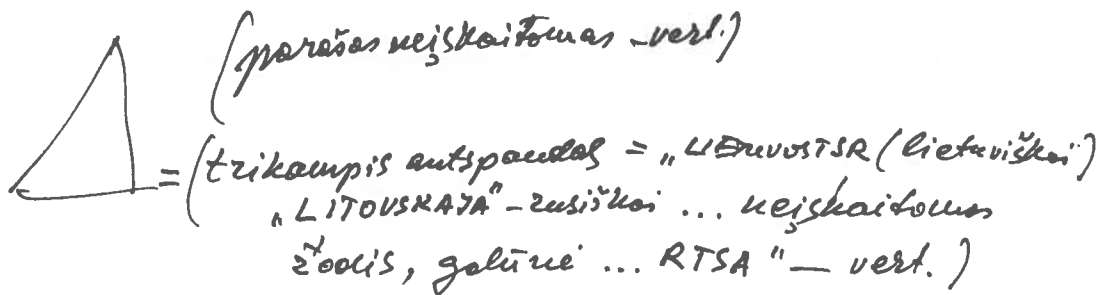 (parašas neįskaitomas – vert.)
= (trikampis antspaudas = „LIETUVOS TSR (lietuviškai)
„LITOVSKAJA" – rusiškai ... neįskaitomas
žodis, galūnė ... RTSA" — vert.)